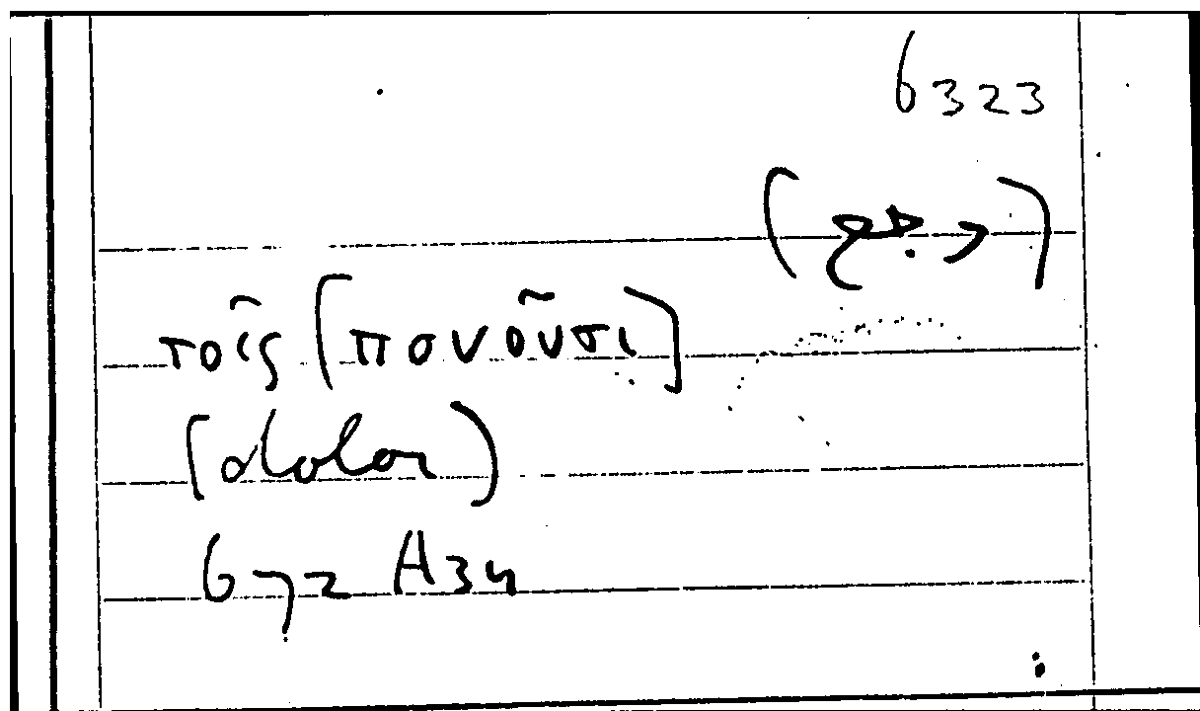 6323
(وجع)
τοῖς [πονοῦσι]
(dolor)
672 A34